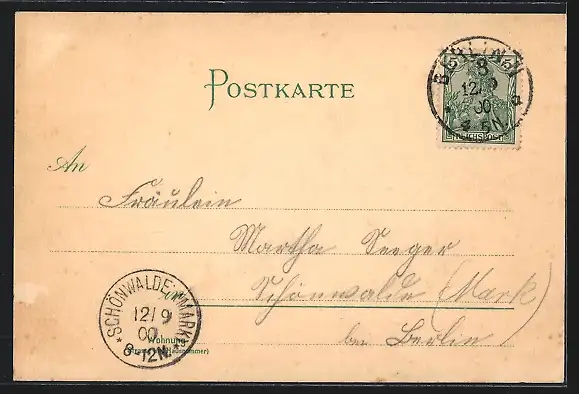 POSTKARTE
BERLIN
8
12/9
00
4-5N.
5 5
REICHSPOST
An
Fräulein
Martha Seeger
in
Schönwalde (Mark)
bei Berlin
*SCHÖNWALDE (MARK)*
12/9
00
8-12N.
Wohnung
(Strasse und Hausnummer)